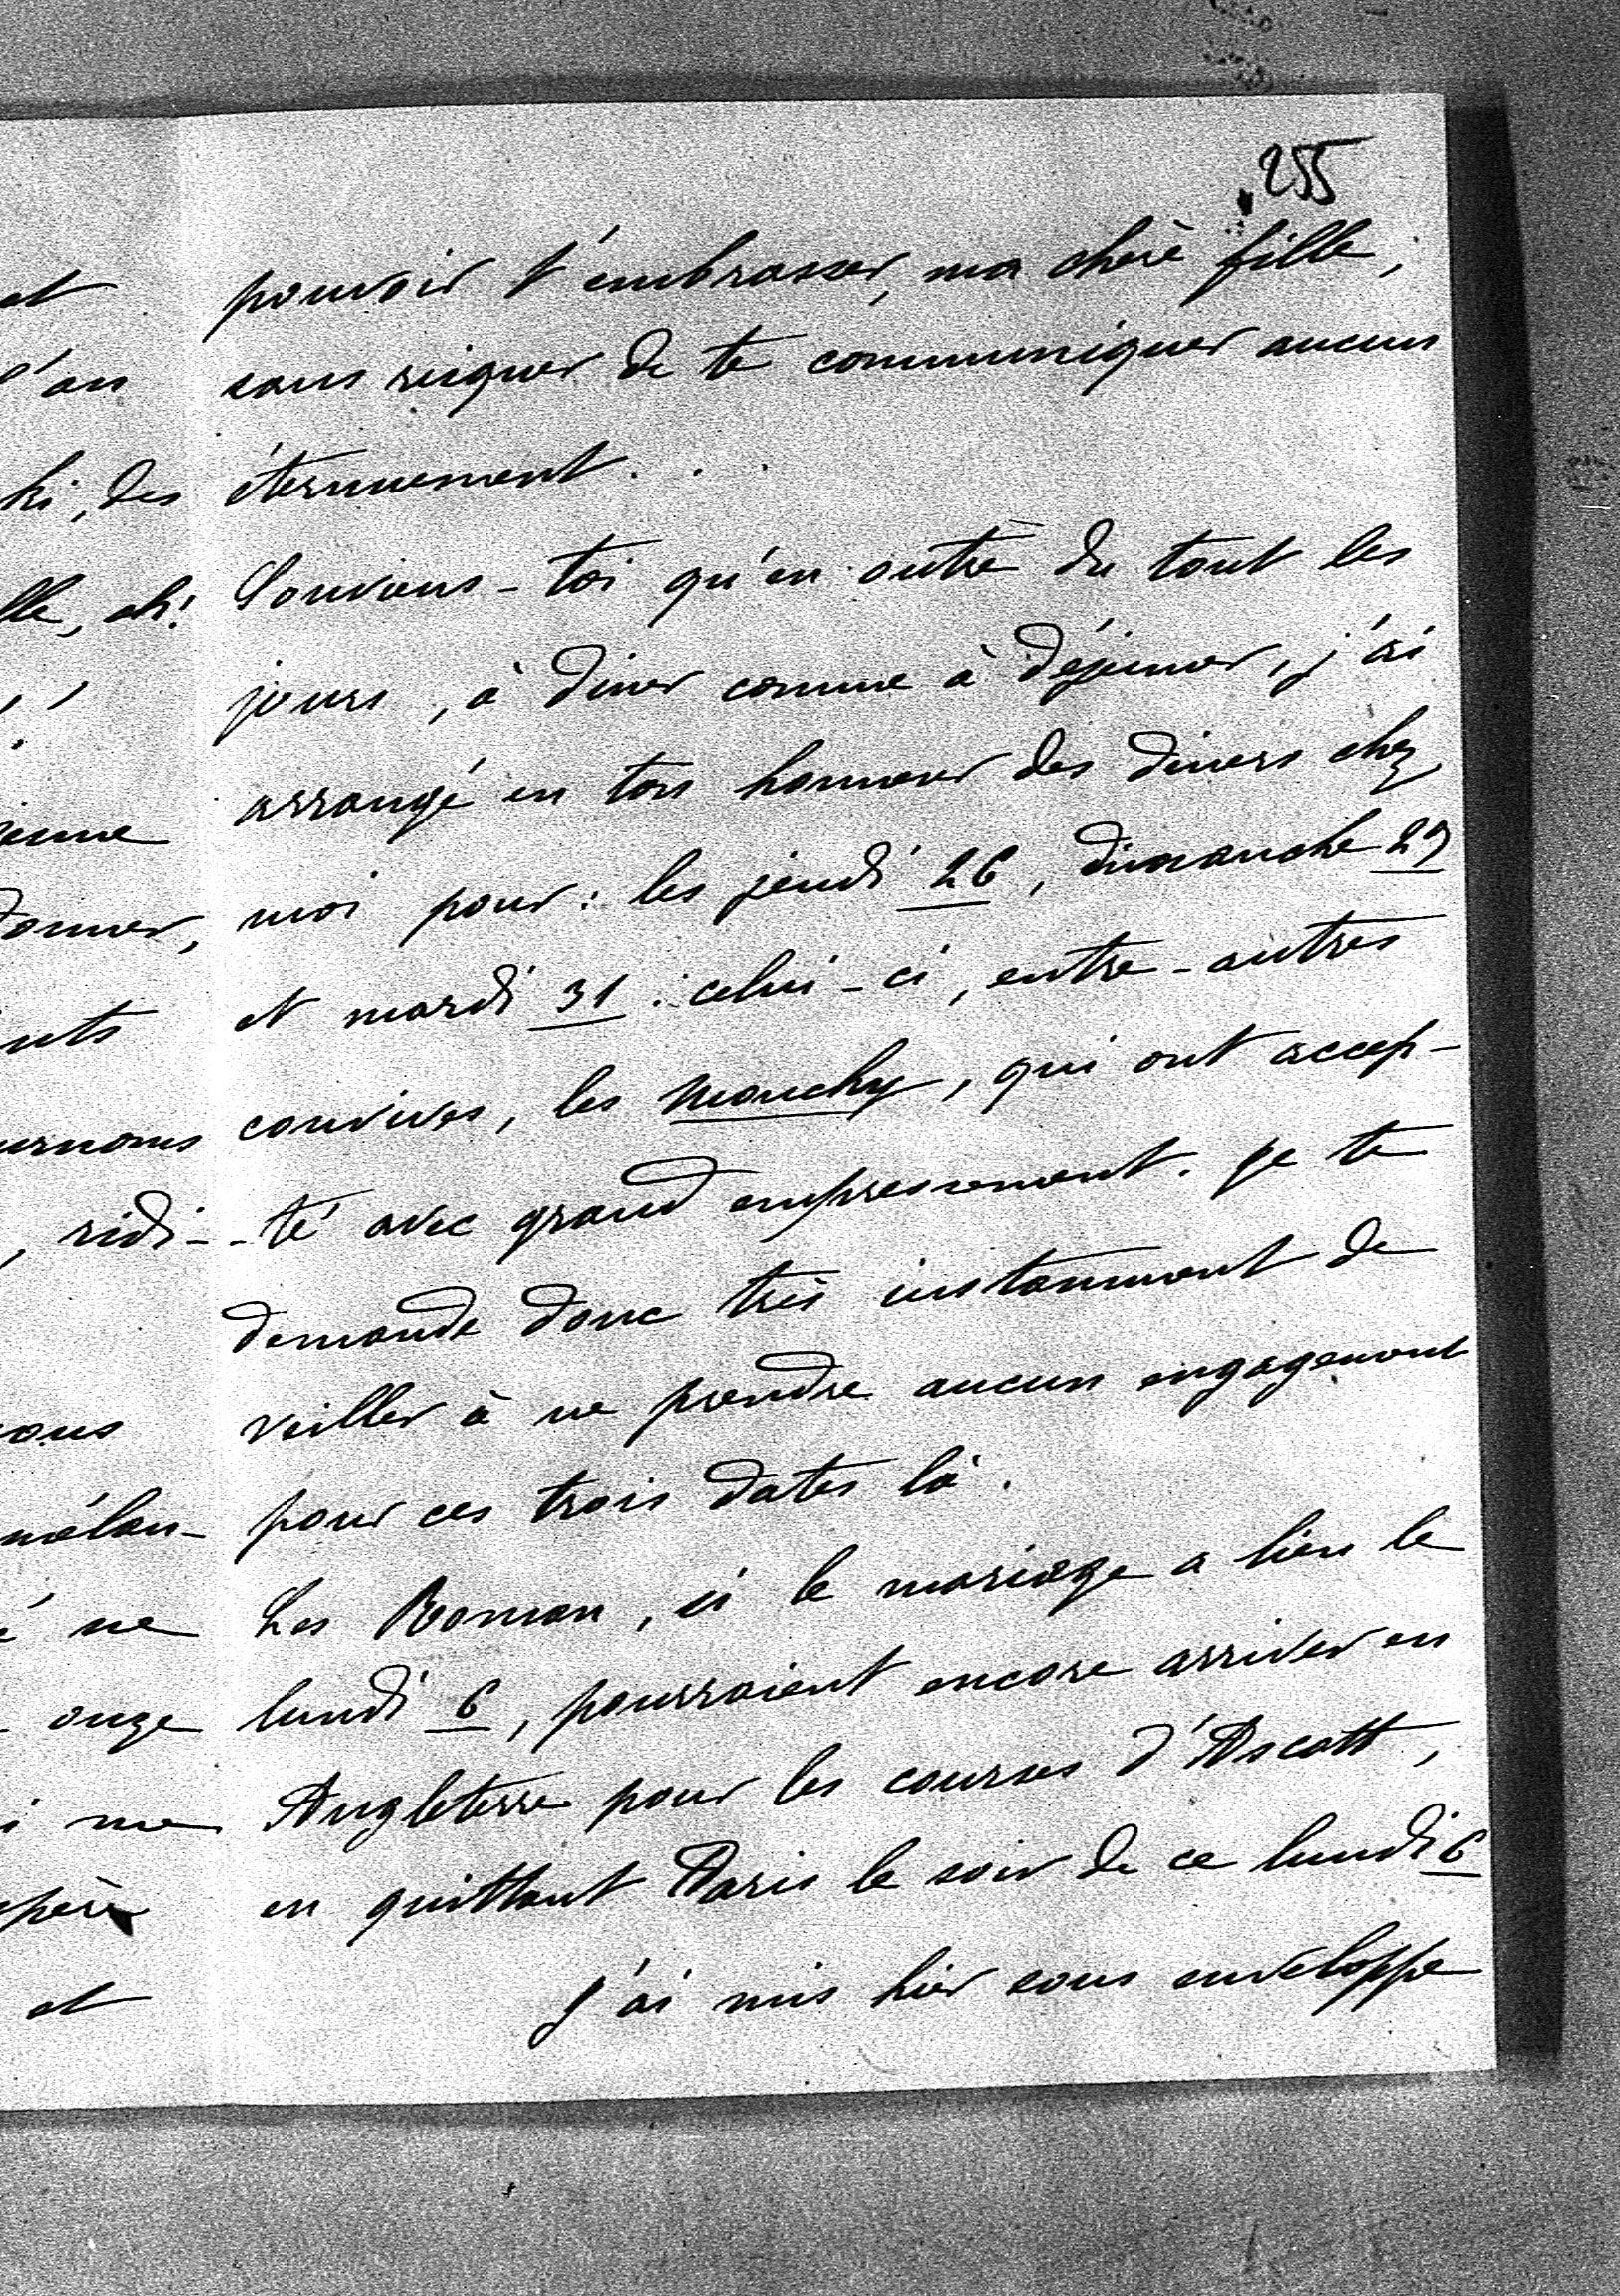 255
pouvoir t'embrasser, ma chère fille,
sans risquer de te communiquer aucun
éternuement...
Souviens-toi qu'en outre du tout les
jours, à diner comme à déjeuner, j'ai
arrangé en ton honneur des diners chez
moi pour : les jeudi 26, dimanche 29
et mardi 31 : celui-ci, entre-autres
convives, les Mouchy, qui ont accep-
-té avec grand empressement. Je te
demande donc très instamment de
veiller à ne prendre aucun engagement
pour ces trois dates là.
Les Roman, si le mariage a lieu le
lundi 6, pourraient encore arriver en
Angleterre pour les courses d'Ascott,
en quittant Paris le soir de ce lundi 6
J'ai mis hier sous enveloppe
et
l'an
ki, des
lle, ah!
donner,
, ridi-
mélan-
é ne
onze
i me
et